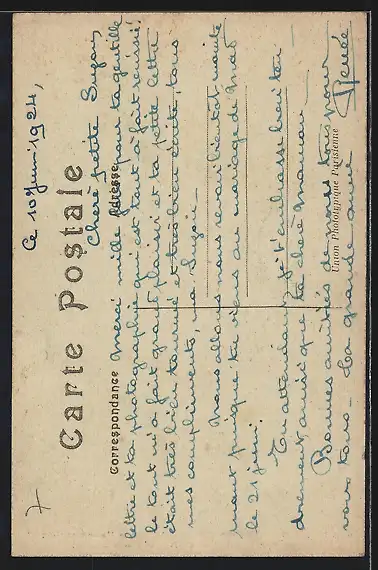 Ce 10 Juin 1924,
Carte Postale
Correspondance
Adresse
Chère petite Suzon,
Merci mille fois pour ta gentille
lettre et ta photographie qui est tout à fait réussie.
le tout m'a fait grand plaisir et ta petite lettre
était très bien tournée et très bien écrite, tous
mes compliments, ma Suzon.
Nous allons nous revoir bientôt maintenant
puisque tu viens au mariage de
le 21 juin.
En attendant, je t'embrasse bien tendrement,
ainsi que ta chère Maman.
Bonnes amitiés de nous tous pour
vous tous. Ta grande amie
Renée
Union Phototypique Parisienne